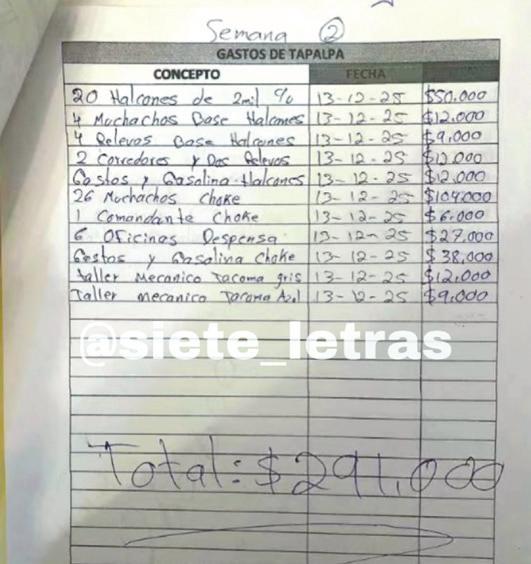 Semana 2
GASTOS DE TAPALPA
CONCEPTO FECHA
20 Halcones de 2mil % 13-12-25 $50.000
4 Muchachos Base Halcones 13-12-25 $12.000
4 Relevos Base Halcones 13-12-25 $9,000
2 Corredores y Dos Relevos 13-12-25
Gastos y Gasolina Halcones 13-12-25 $12.000
26 Muchachos choke 13-12-25 $104.000
1 Comandante Choke 13-12-25 $6.000
6 Oficinas Despensa 13-12-25 $27.000
Gastos y Gasolina Choke 13-12-25 $38,000
Taller Mecanico Tacoma gris 13-12-25 $12,000
Taller mecanico Tacoma Azul 13-12-25 $9,000
@siete_letras
Total: $291,000